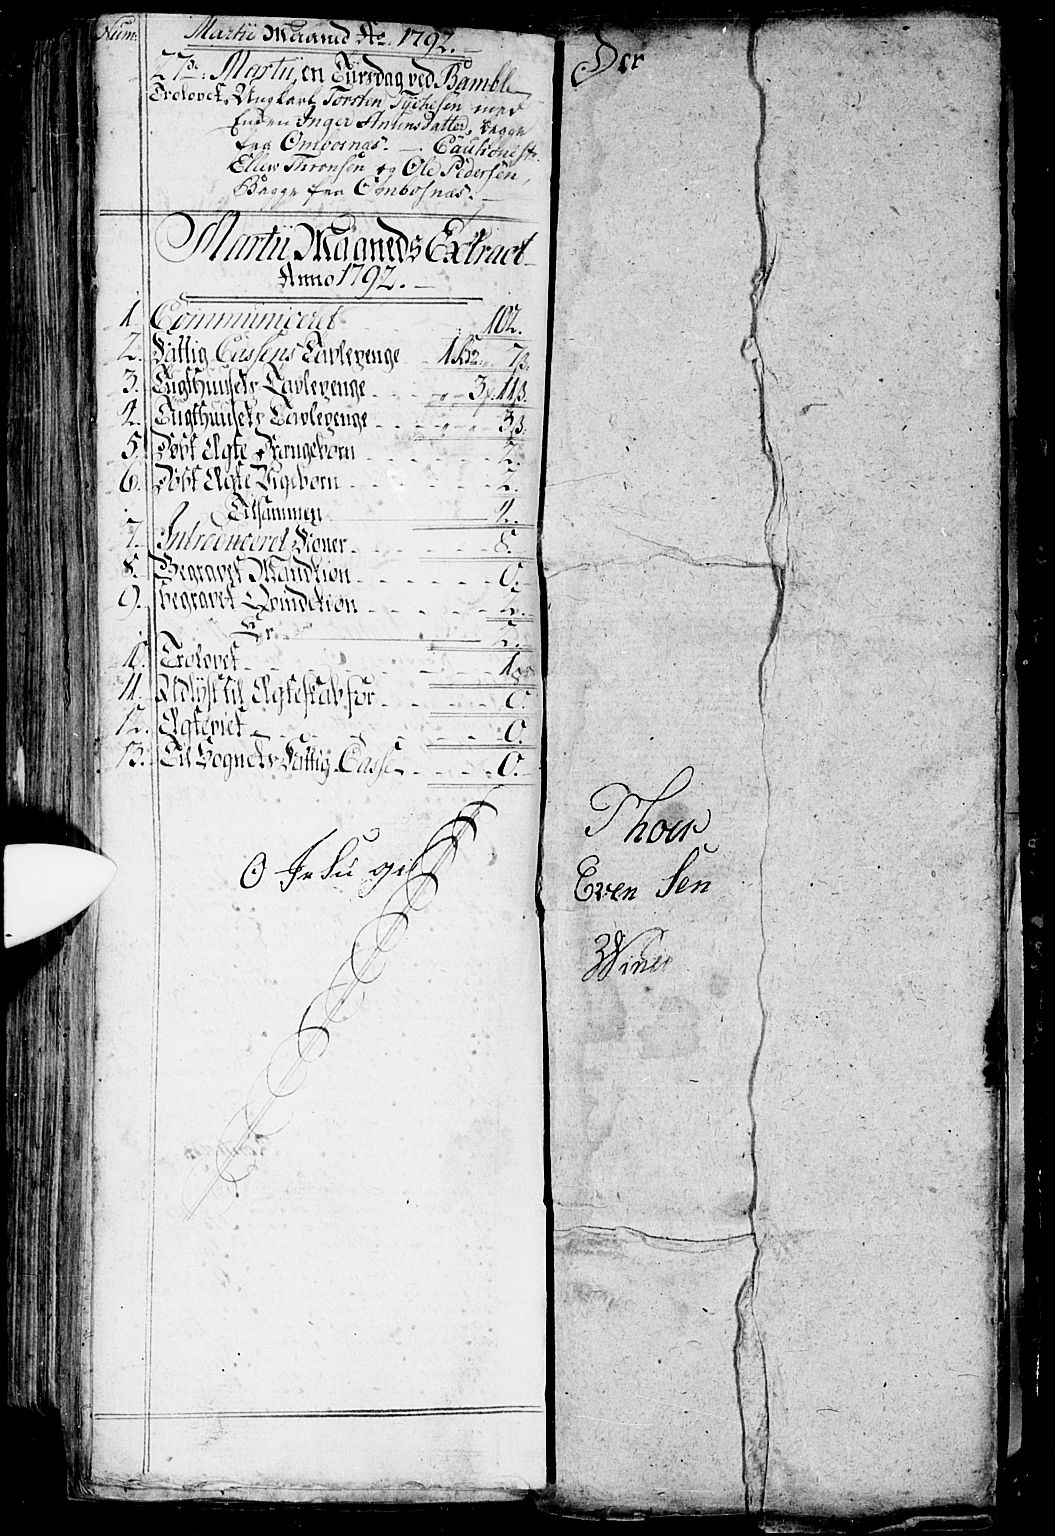 Num: Martii Maaned Ao. 1792.
27de: Martii, en Tiirsdag ved Bamble
Trolovet, Ungkarl Torsten Tychesen med
Enden Inger Amunsdatter, begge
fra Ombosnæs. — Cautionistr.
Ellew Thronsen og Ole Pedersen,
Begge fra Ombosnæs. —
Martii Maaneds Extract
Anno 1792. —
1. Communiceret 102.
2. Fattig Cassens Tavlepenge 1 7ß.
3. Tugthuusets Tavlepenge 3 11ß.
4. Tugthuusets Tavlepenge 3ß.
5. Døbt Ægte Drengebørn 2.
6. Døbt Ægte Pigebørn 2.
Tilsammen 4.
7. Introduceret Koner 8.
8. Begravet Mandkion 0.
9. Begravet Qvindekion 2.
Er 2.
10. Trolovet 1
11. Udlyst til Ægteskab for 0.
12. Ægteviet 0.
13. Til Sognets Fattig Casse 0.
O Jesu gid
Der
Thor
Even Sen